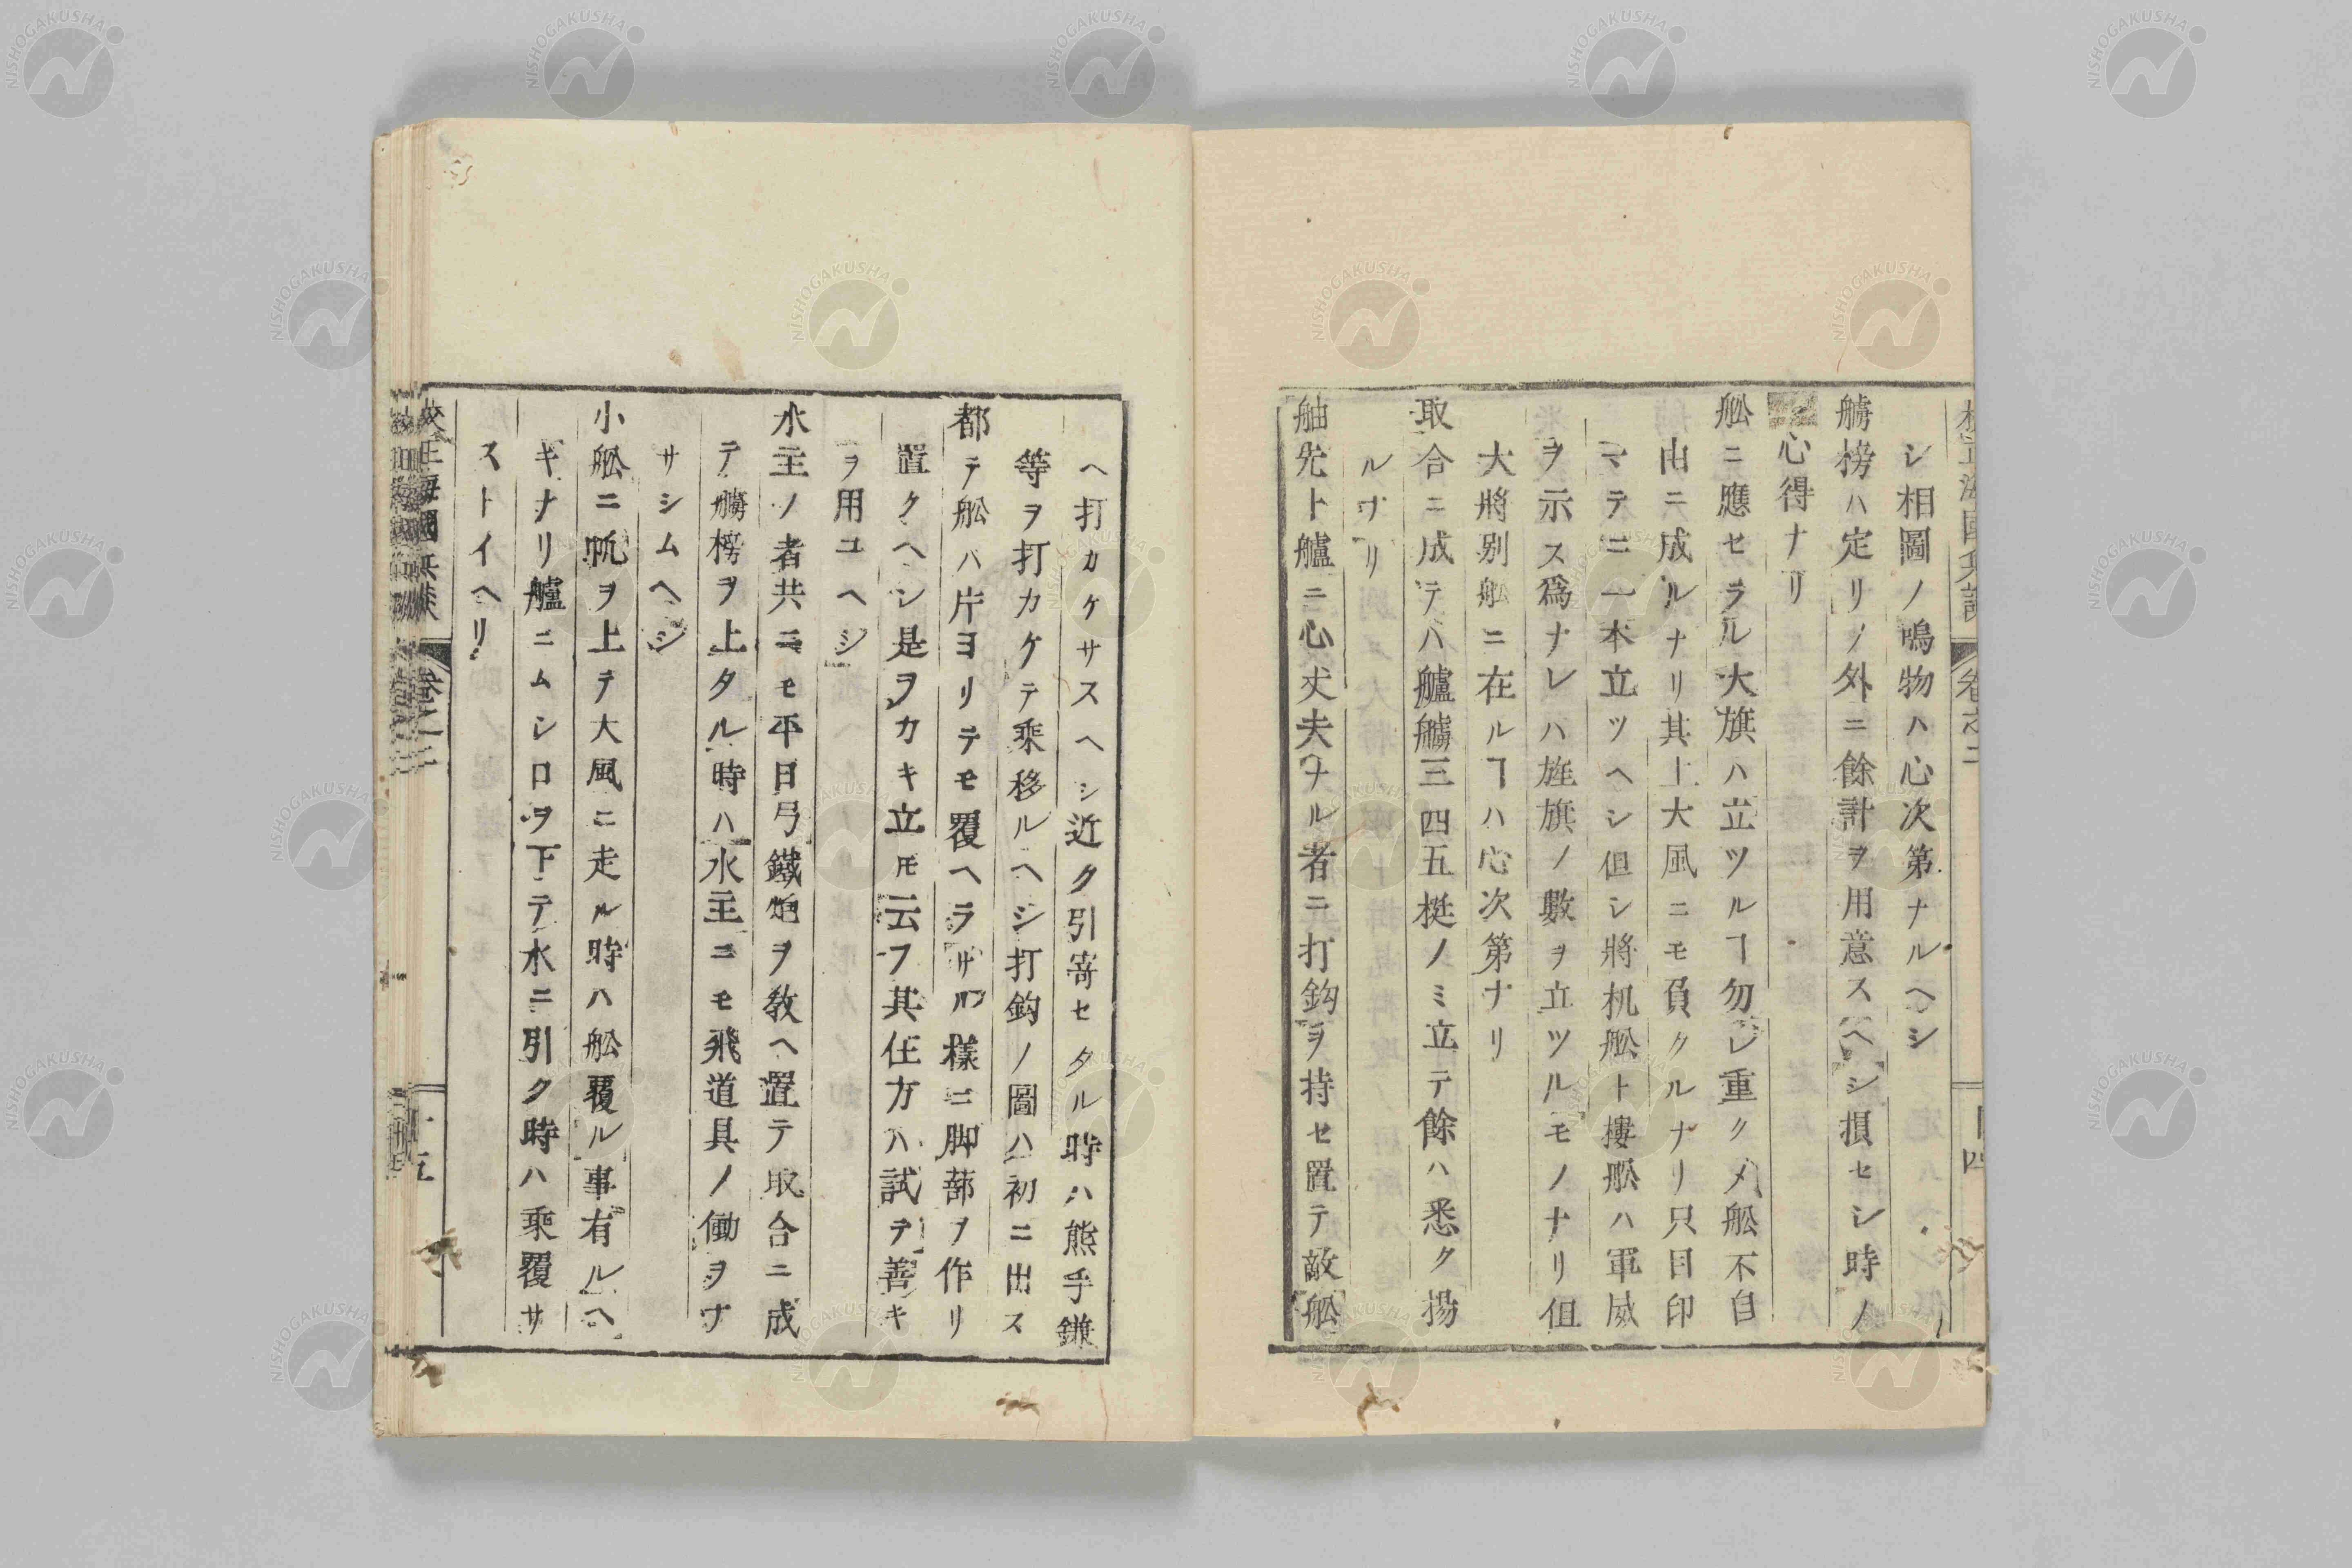 シ相圖ノ鳴物ハ心次第ナルヘシ
艣榜ハ定リノ外ニ餘計ヲ用意スヘシ損セシ時ノ
心得ナリ
舩ニ應セラル大旗ハ立ツルヿ勿レ重クメ舩不自
由ニ成ルナリ其上大風ニモ負クルナリ只目印
マテニ一本立ツヘシ但シ將机舩ト樓舩ハ軍威
ヲ示ス爲ナレハ旌旗ノ數ヲ立ツルモノナリ但
大將别舩ニ在ルヿハ心次第ナリ
取合ニ成テハ艫艣三四五挺ノミ立テ餘ハ悉ク揚
ルヿリ
舳先ト艫ニ心丈夫ナル者ニ打鈎ヲ持セ置テ敵舩
ヘ打カケサスヘシ近ク引寄セタル時ハ熊手鎌
等ヲ打カケテ乘移ルヘシ打鈎ノ圖ハ初ニ出ス
都テ舩ハ片ヨリテモ覆ヘラサル樣ニ脚蔀ヲ作リ
置クヘシ是ヲカキ立モ云フ其仕方ハ試テ善キ
ヲ用ユヘシ
水主ノ者共ニモ平日弓鐵炮ヲ敎ヘ置テ取合ニ成
テ艣榜ヲ上タル時ハ水主ニモ飛道具ノ働ヲナ
サシムヘシ
小舩ニ帆ヲ上テ大風ニ走ル時ハ舩覆ル事有ルヘ
キナリ艫ニムシロヲ下テ水ニ引ク時ハ乘覆サ
ストイヘリ
NISHOGAKUSHA